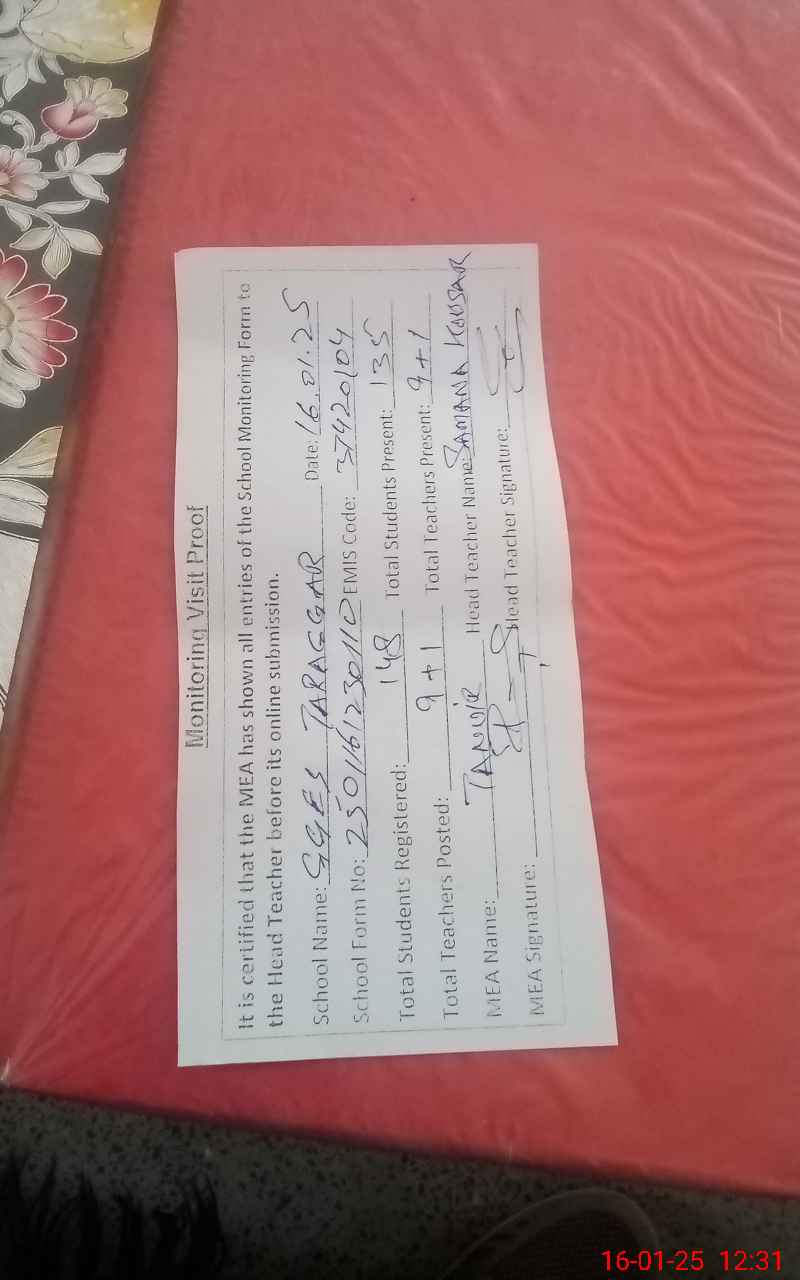 Monitoring Visit Proof
It is certified that the MEA has shown all entries of the School Monitoring Form to
the Head Teacher before its online submission.
School Name: GGES TARAGGAR Date: 16.01.25
School Form No: 2501161230110 EMIS Code: 37420104
Total Students Registered: 148 Total Students Present: 135
Total Teachers Posted: 9+1 Total Teachers Present: 9+1
MEA Name: TANVIR Head Teacher Name: SAMANA KOUSAR
MEA Signature: Head Teacher Signature:
16-01-25 12:31